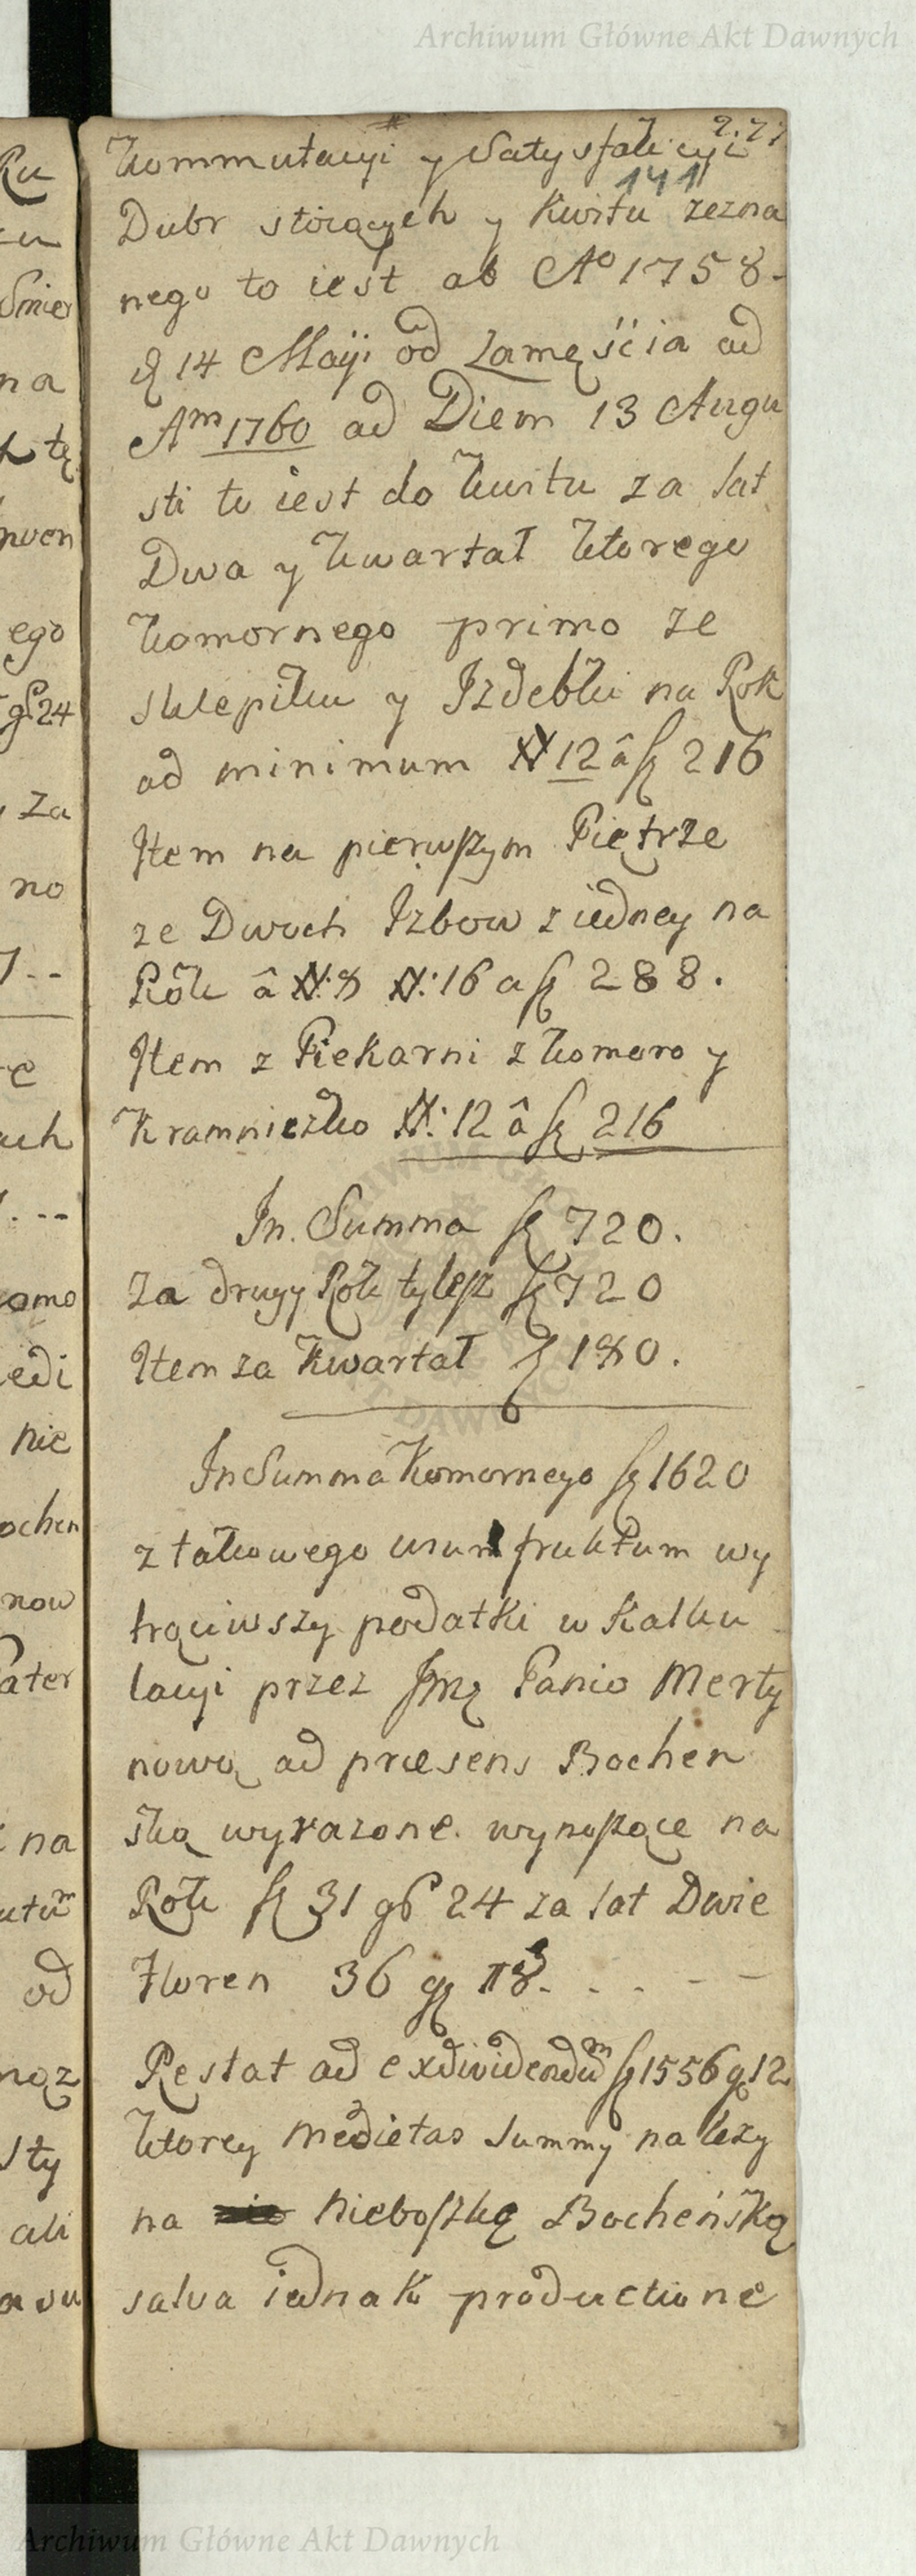 Archiwum Główne Akt Dawnych
Kommutacyi y Satysfakcyi
141
Dobr stoiących y Kwitu zezna
nego to iest ab Aº 1758
14 Maÿi od zamęścia ad
Aᵐ 1760 ad Diem 13 Augu
sti to iest do kwitu za lat
Dwa y kwartał ktorego
komornego primo ze
sklepiku y Izdebki na Rok
ad minimum # 12 â f 216
Item na pierwszym Piętrze
ze Dwoch Izbow z iedney na
Rok â #: 8 #: 16 a f 288.
Item z Piekarni z komoro y
Kramniczko #: 12 â f 216
In. Summa f 720.
za drugy Rok tylesz f 720
Item za Kwartał f 180.
In Summa Komornego f 1620
z takowego usum fruktum wy
trąciwszy podatki w Kalku
lacyi przez Jmę Panio Merty
nową ad præsens Bochen
ską wyrazone. wynoszące na
Rok f 31 gr 24 za lat Dwie
Floren 36 gr 18. . . - -
Restat ad exdividendũᵐ f 1556 g 12
ktorey medietas summy nalezy
na nieboszkę Bocheńską
salva iednak productione
Ru
Smier
na
tę
ego
24
za
no
omo
edi
nie
ochen
now
Pater
na
od
sty
ali
Archiwum Główne Akt Dawnych